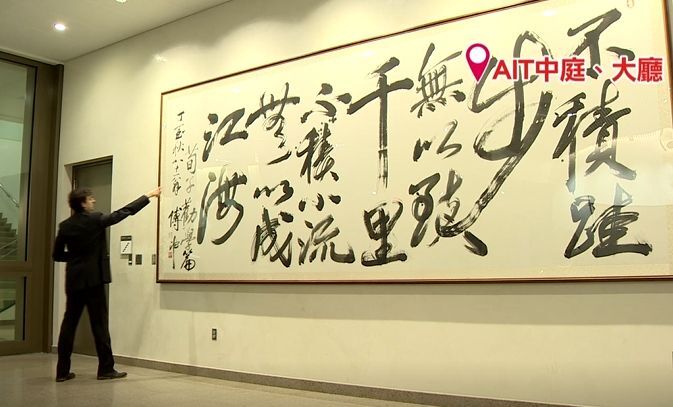 AIT中庭、大廳
不積跬
步
無以致
千里
不積小流
無以成
江海
荀子勸學篇
丁酉秋
傅申